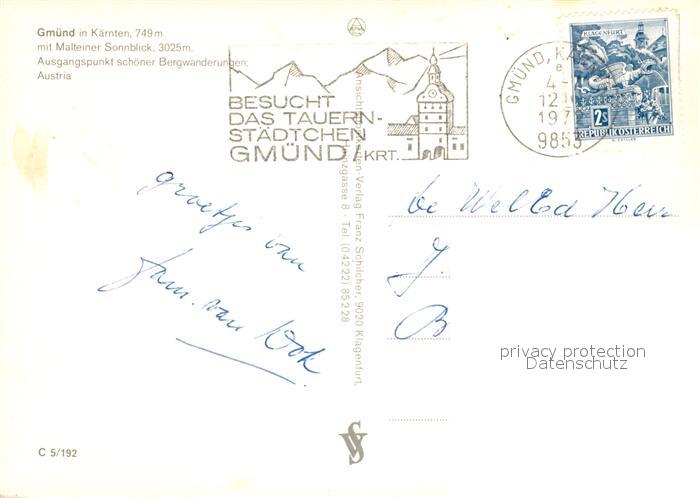 Gmünd in Kärnten, 749 m
mit Malteiner Sonnblick, 3025m.
Ausgangspunkt schöner Bergwanderungen;
Austria
BESUCHT
DAS TAUERN-
STÄDTCHEN
GMÜND / KRT.
GMÜND, KÄ
e
4
12
197
9853
KLAGENFURT
2S
REPUBLIK ÖSTERREICH
Verlag Franz Schilcher, 9020 Klagenfurt,
gasse 8 · Tel. (0 42 22) 85 2 28
groetjes van
fam. van Kok.
de Wel Ed Heer
J.
B
privacy protection
Datenschutz
C 5/192